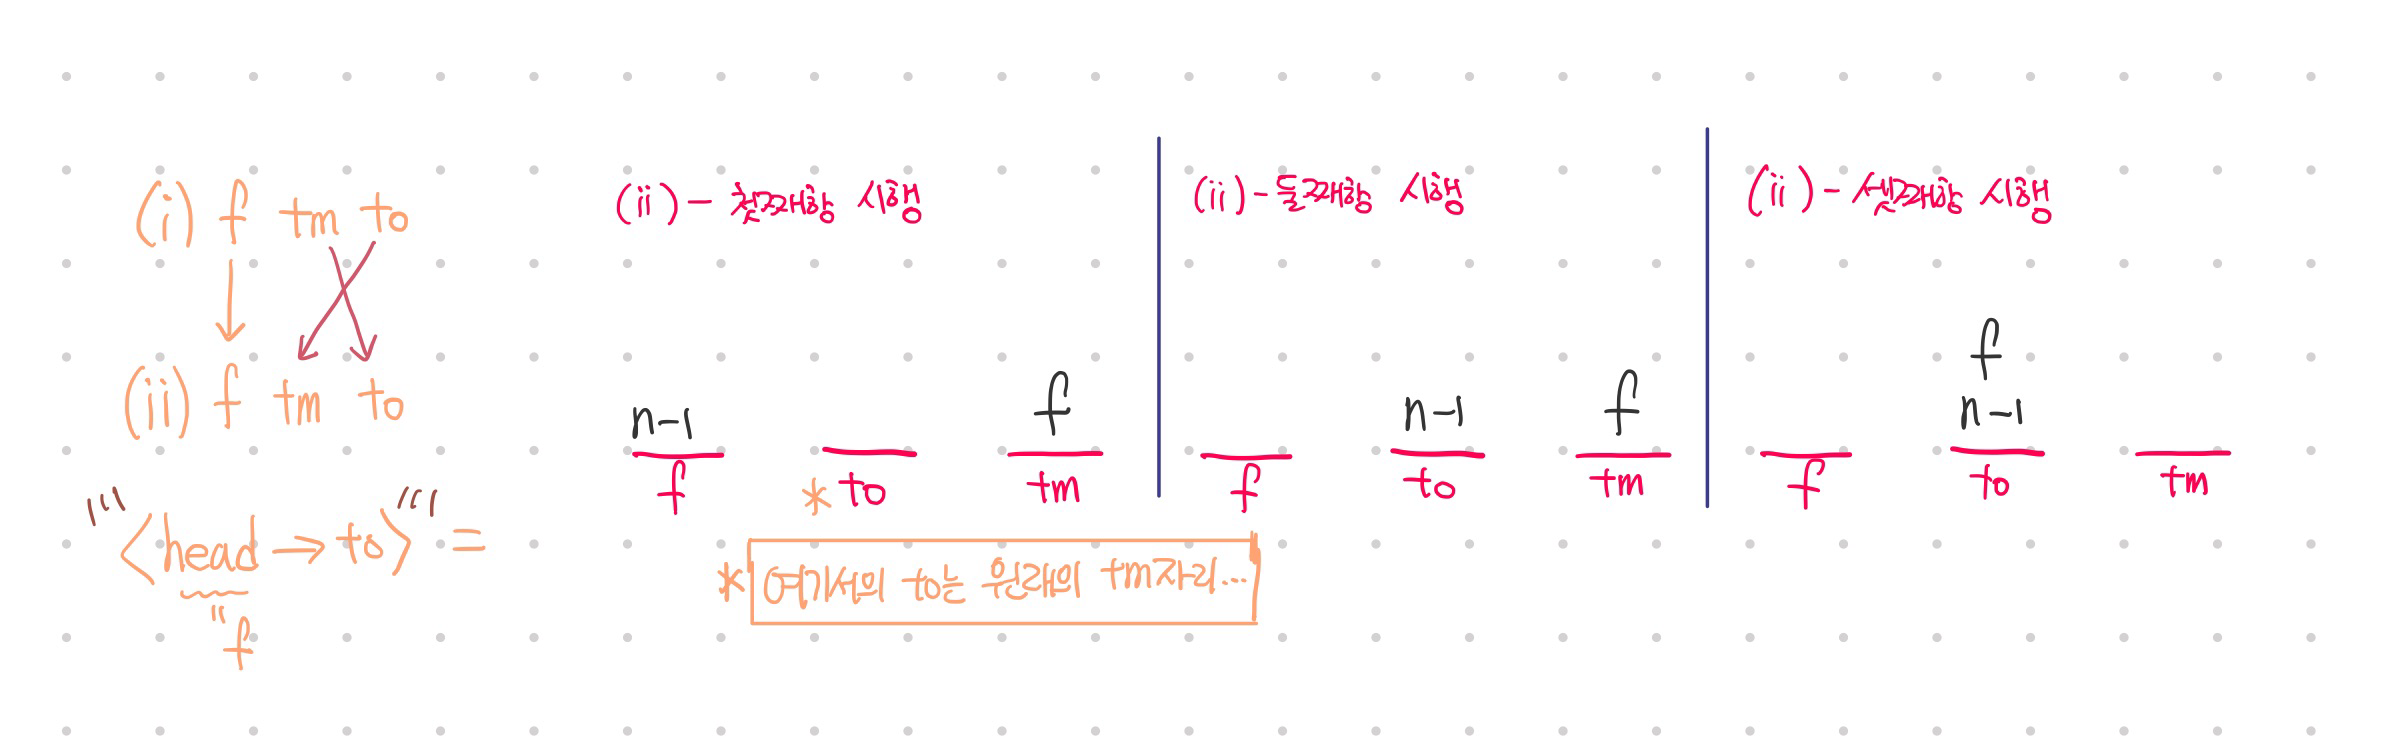 (i) f tm to
(ii) f tm to
"<head → to>" =
"
f
(ii) - 첫째항 시행
n-1
f
f
* to
tm
* 여기서의 to는 원래의 tm자리...
(ii) - 둘째항 시행
n-1
f
f
to
tm
(ii) - 셋째항 시행
f
n-1
f
to
tm